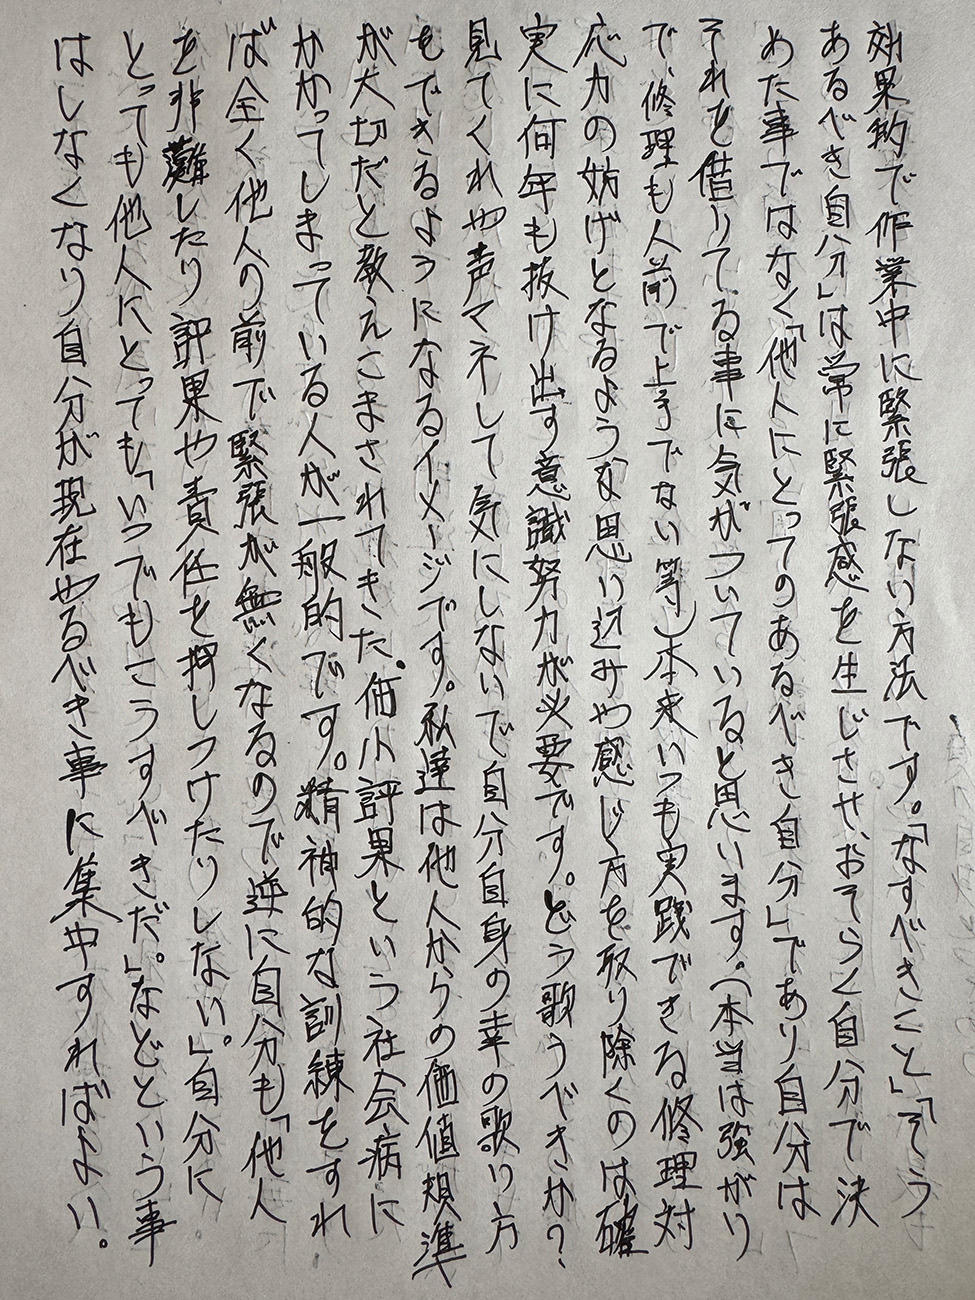 効果的で作業中に緊張しない方法です。「なすべきこと」「そう
あるべき自分」は常に緊張感を生じさせ、おそらく自分で決
めた事ではなく「他人にとってのあるべき自分」であり自分は
それを借りてる事に気がついていると思います。(本当は強がり
で、修理も人前で上手でない等)本来いつも実践できる修理対
応力の妨げとなるような思い込みや感じ方を取り除くのは確
実に何年も抜け出す意識努力が必要です。どう歌うべきか?
見てくれや声マネして気にしないで自分自身の幸の歌い方
もできるようになるイメージです。私達は他人からの価値規準
が大切だと教えこまされてきた。価小評果という社会病に
かかってしまっている人が一般的です。精神的な訓練をすれ
ば全く他人の前で緊張が無くなるので逆に自分も「他人
を非難したり評果や責任を押しつけたりしない」。自分に
とっても他人にとっても「いつでもこうすべきだ。」などという事
はしなくなり自分が現在やるべき事に集中すればよい。